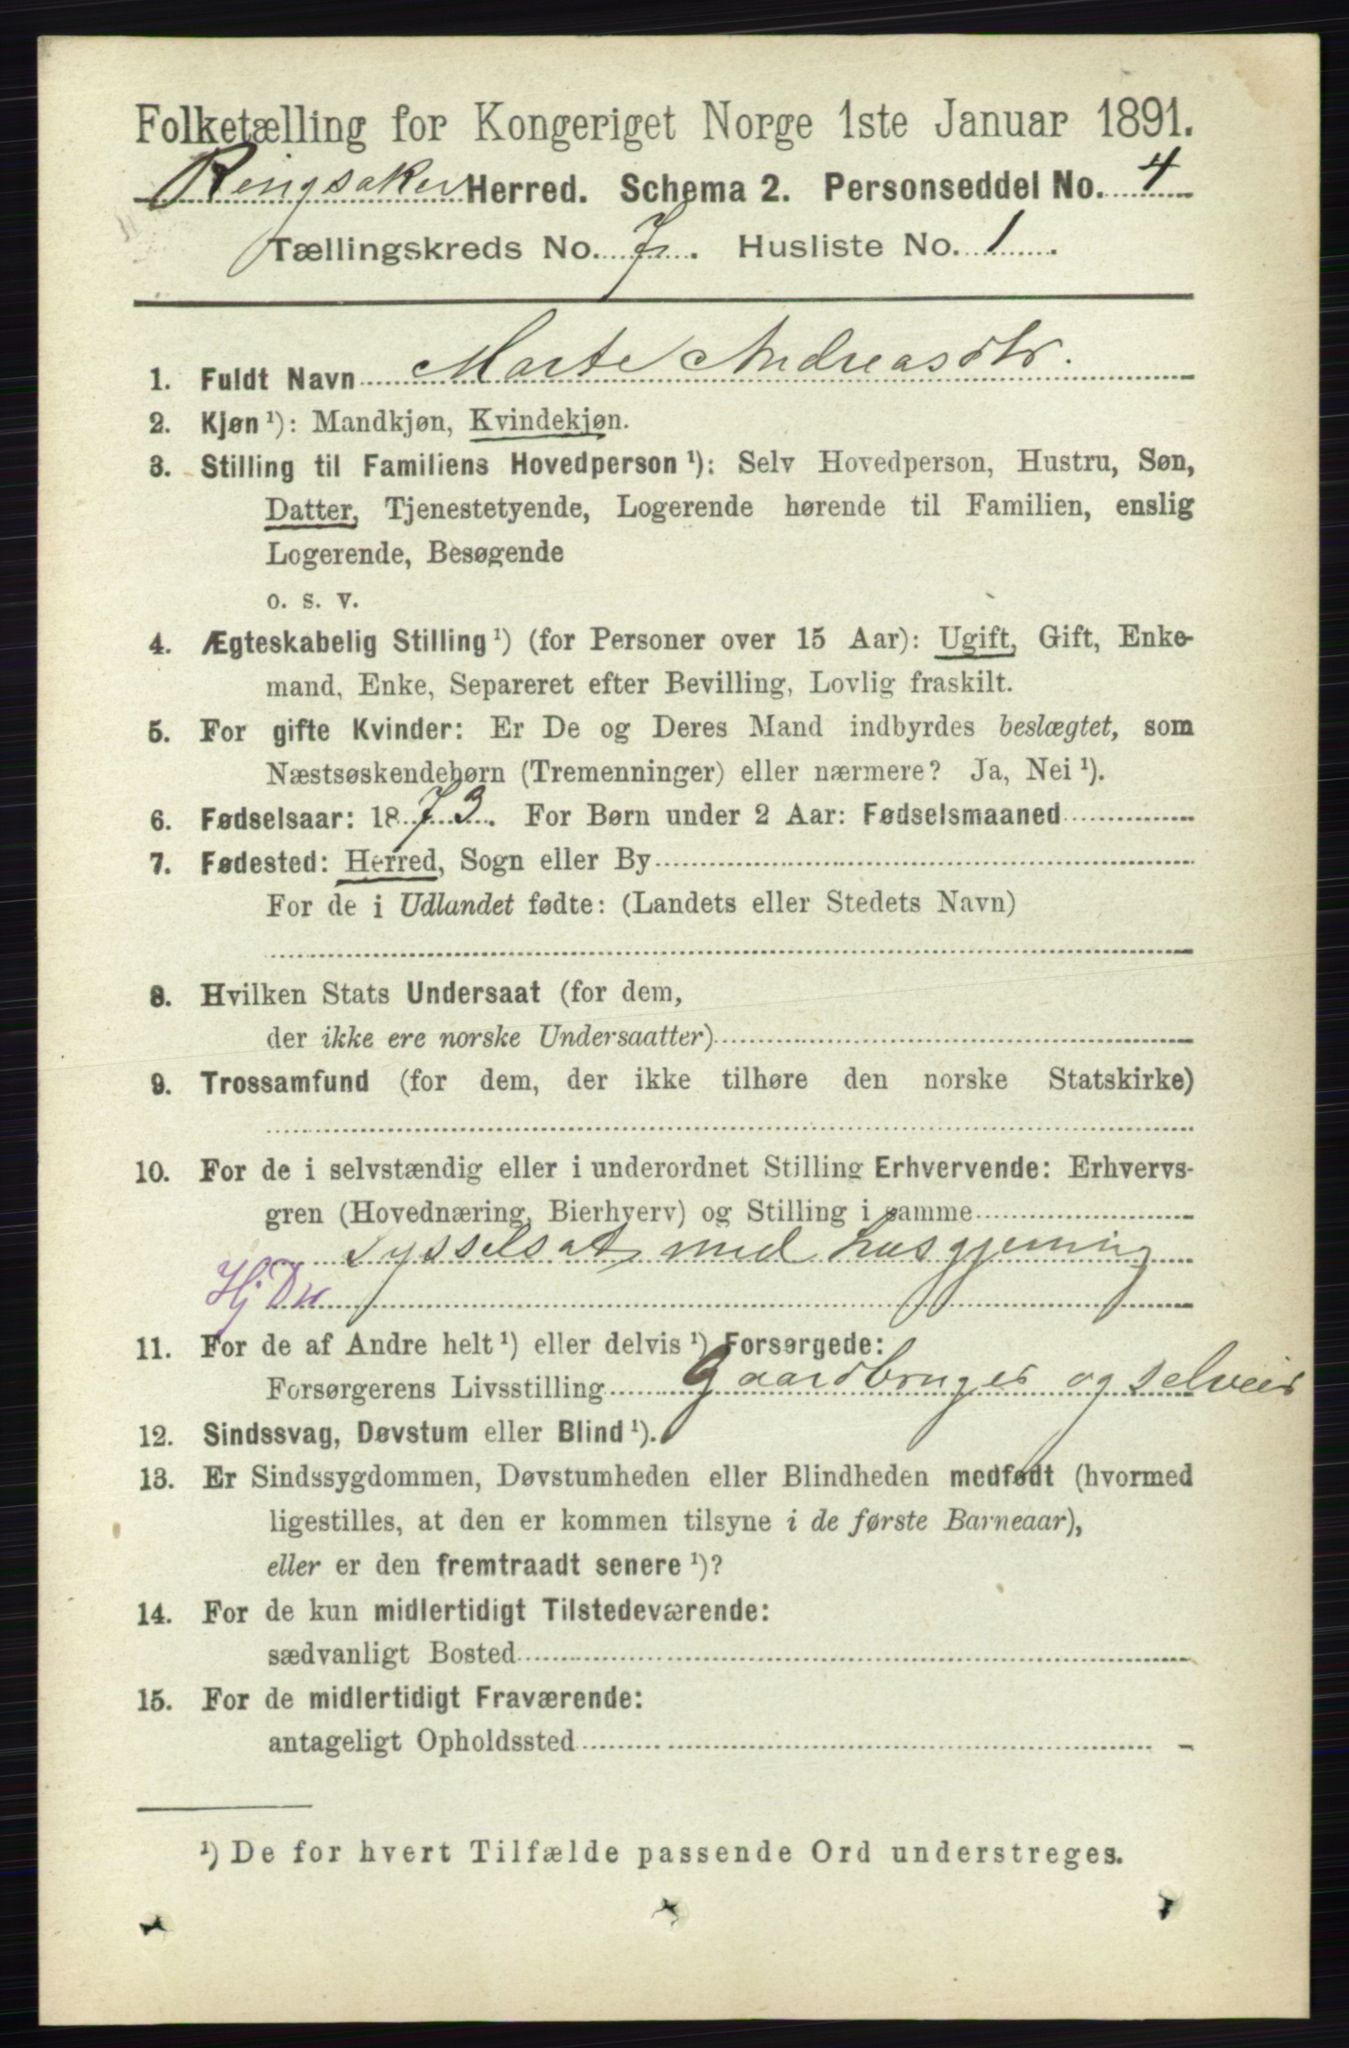 Folketælling for Kongeriget Norge 1ste Januar 1891.
Ringsaker Herred. Schema 2. Personseddel No. 4
Tællingskreds No. 7. Husliste No. 1.
1. Fuldt Navn Marte Andreasdtr.
2. Kjøn ¹): Mandkjøn, Kvindekjøn.
3. Stilling til Familiens Hovedperson ¹): Selv Hovedperson, Hustru, Søn,
Datter, Tjenestetyende, Logerende hørende til Familien, enslig
Logerende, Besøgende
o. s. v.
4. Ægteskabelig Stilling ¹) (for Personer over 15 Aar): Ugift, Gift, Enke-
mand, Enke, Separeret efter Bevilling, Lovlig fraskilt.
5. For gifte Kvinder: Er De og Deres Mand indbyrdes beslægtet, som
Næstsøskendebørn (Tremenninger) eller nærmere? Ja, Nei ¹).
6. Fødselsaar: 1873. For Børn under 2 Aar: Fødselsmaaned
7. Fødested: Herred, Sogn eller By
For de i Udlandet fødte: (Landets eller Stedets Navn)
8. Hvilken Stats Undersaat (for dem,
der ikke ere norske Undersaatter)
9. Trossamfund (for dem, der ikke tilhøre den norske Statskirke)
10. For de i selvstændig eller i underordnet Stilling Erhvervende: Erhvervs-
gren (Hovednæring, Bierhverv) og Stilling i samme
Sysselsat med husgjerning
Hj Dtr
11. For de af Andre helt ¹) eller delvis ¹) Forsørgede:
Forsørgerens Livsstilling Gaardbruger og selveier
12. Sindssvag, Døvstum eller Blind ¹).
13. Er Sindssygdommen, Døvstumheden eller Blindheden medfødt (hvormed
ligestilles, at den er kommen tilsyne i de første Barneaar),
eller er den fremtraadt senere ¹)?
14. For de kun midlertidigt Tilstedeværende:
sædvanligt Bosted
15. For de midlertidigt Fraværende:
antageligt Opholdssted
¹) De for hvert Tilfælde passende Ord understreges.